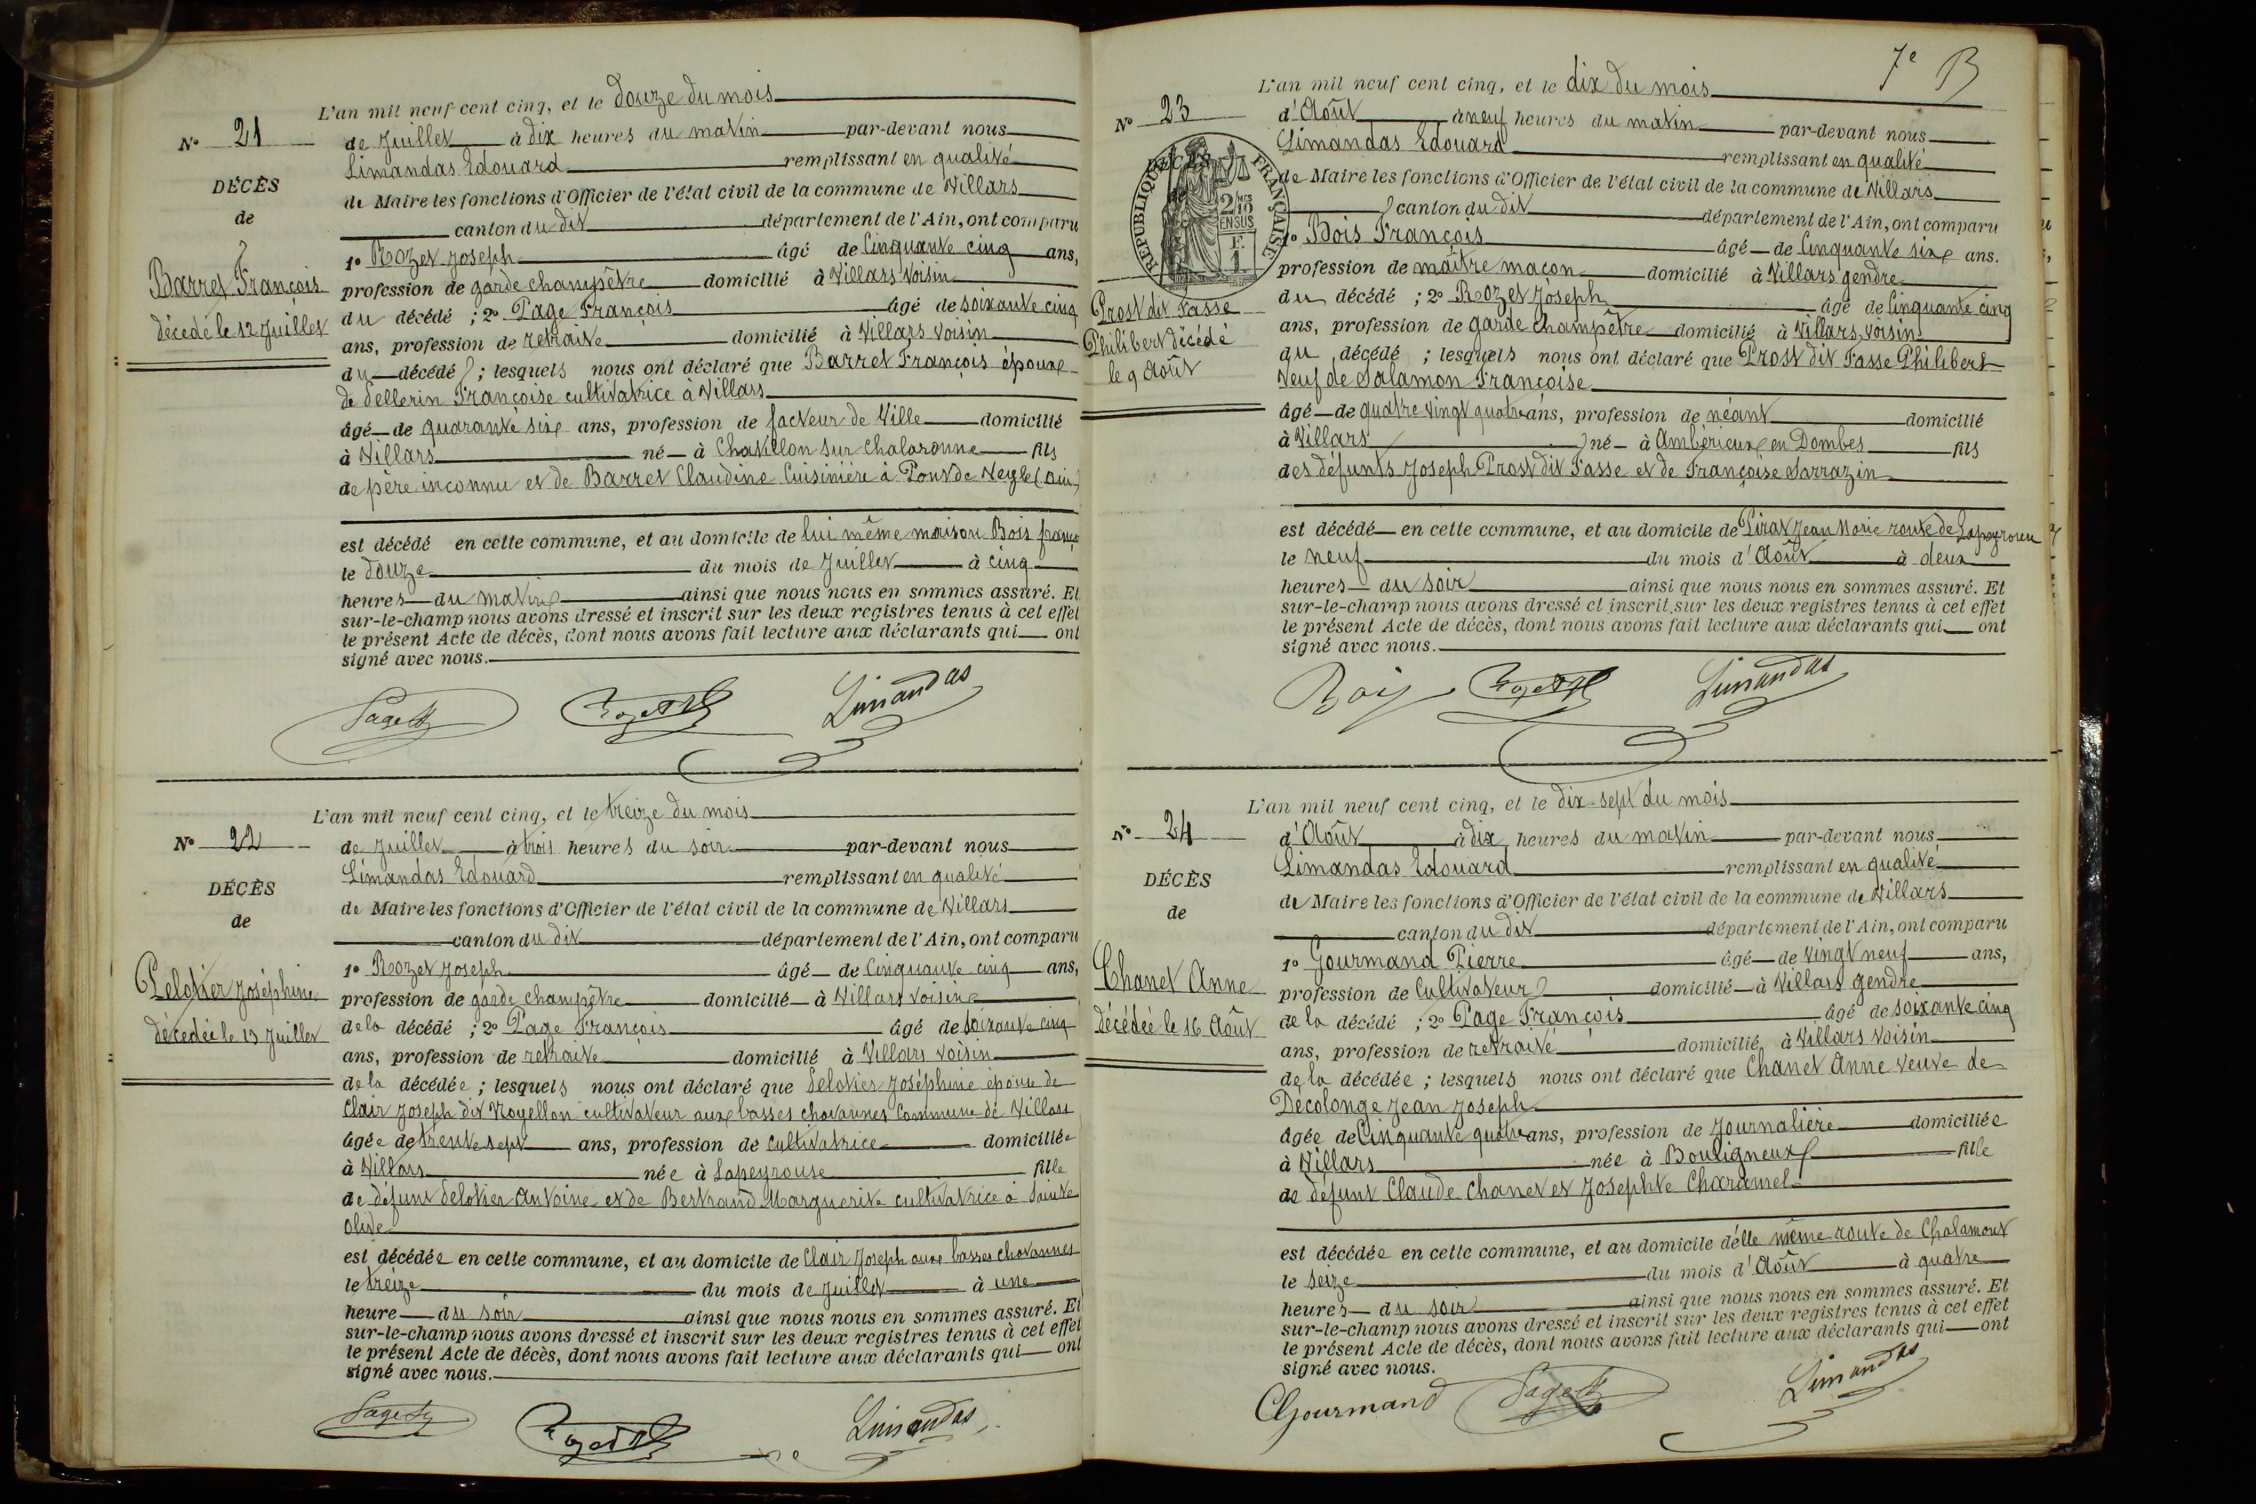 L'an mil neuf cent cinq, et le douze du mois
N° 21
de Juillet à dix heures du matin par-devant nous
Limandas Edouard remplissant en qualité
DÉCÈS
de Maire les fonctions d'Officier de l'état civil de la commune de Villars
de
canton du dit département de l'Ain, ont comparu
1° Rozet Joseph âgé de Cinquante cinq ans,
Barret François
profession de garde champêtre domicilié à Villars voisin
décédé le 12 Juillet
du décédé ; 2° Page François âgé de soixante cinq
ans, profession de retraité domicilié à Villars voisin
du décédé ; lesquels nous ont déclaré que Barret François époux
de Pellerin Françoise cultivatrice à Villars
âgé de quarante six ans, profession de facteur de Ville domicilié
à Villars né à Chatillon sur Chalaronne fils
de père inconnu et de Barret Claudine Cuisinière à Pont de Veyle (Ain)
est décédé en cette commune, et au domicile de lui même maison Bois
le douze du mois de Juillet à cinq
heures du matin ainsi que nous nous en sommes assuré. Et
sur-le-champ nous avons dressé et inscrit sur les deux registres tenus à cet effet
le présent Acte de décès, dont nous avons fait lecture aux déclarants qui ont
signé avec nous.
Page Rozet Limandas
L'an mil neuf cent cinq, et le treize du mois
N° 22
de Juillet à trois heures du soir par-devant nous
Limandas Edouard remplissant en qualité
DÉCÈS
de Maire les fonctions d'Officier de l'état civil de la commune de Villars
de
canton du dit département de l'Ain, ont comparu
1° Rozet Joseph âgé de Cinquante cinq ans,
Pelotier Joséphine
profession de garde champêtre domicilié à Villars voisin
décédée le 13 Juillet
de la décédé ; 2° Page François âgé de soixante cinq
ans, profession de retraité domicilié à Villars voisin
de la décédée ; lesquels nous ont déclaré que Pelotier Joséphine épouse de
Clair Joseph dit Noyellon cultivateur aux basses chavannes Commune de Villars
âgée de trente sept ans, profession de cultivatrice domiciliée
à Villars née à Lapeyrouse fille
de défunt Pelotier Antoine et de Bertrand Marguerite cultivatrice à Sainte
Olive
est décédée en cette commune, et au domicile de Clair Joseph aux basses chavannes
le treize du mois de Juillet à une
heure du soir ainsi que nous nous en sommes assuré. Et
sur-le-champ nous avons dressé et inscrit sur les deux registres tenus à cet effet
le présent Acte de décès, dont nous avons fait lecture aux déclarants qui ont
signé avec nous.
Page Rozet Limandas
7e B
L'an mil neuf cent cinq, et le dix du mois
N° 23
d'Août à neuf heures du matin par-devant nous
Limandas Edouard remplissant en qualité
DÉCÈS
RÉPUBLIQUE FRANÇAISE
2/10 EN SUS
F. 1
de Maire les fonctions d'Officier de l'état civil de la commune de Villars
canton du dit département de l'Ain, ont comparu
1° Bois François âgé de Cinquante six ans.
profession de maître maçon domicilié à Villars gendre
Prost dit Fasse
du décédé ; 2° Rozet Joseph âgé de Cinquante cinq
Philibert décédé
ans, profession de garde champêtre domicilié à Villars, voisin
le 9 Août
du décédé ; lesquels nous ont déclaré que Prost dit Fasse Philibert
Veuf de Salamon Françoise
âgé de quatre vingt quatre ans, profession de néant domicilié
à Villars né à Ambérieux en Dombes fils
des défunts Joseph Prost dit Fasse et de Françoise Sarrazin
est décédé en cette commune, et au domicile de Pirat Jean Marie route de Lapeyrouse
le neuf du mois d'Août à deux
heures du soir ainsi que nous nous en sommes assuré. Et
sur-le-champ nous avons dressé et inscrit sur les deux registres tenus à cet effet
le présent Acte de décès, dont nous avons fait lecture aux déclarants qui ont
signé avec nous.
Bois Rozet Limandas
L'an mil neuf cent cinq, et le dix-sept du mois
N° 24
d'Août à dix heures du matin par-devant nous
Limandas Edouard remplissant en qualité
DÉCÈS
de Maire les fonctions d'Officier de l'état civil de la commune de Villars
de
canton du dit département de l'Ain, ont comparu
1° Gourmand Pierre âgé de vingt neuf ans,
Chanet Anne
profession de Cultivateur domicilié à Villars gendre
décédée le 16 Août
de la décédé ; 2° Page François âgé de soixante cinq
ans, profession de retraité domicilié à Villars voisin
de la décédée ; lesquels nous ont déclaré que Chanet Anne veuve de
Décolonge Jean Joseph
âgée de Cinquante quatre ans, profession de Journalière domiciliée
à Villars née à Bouligneux fille
de défunt Claude Chanet et Josephte Charamel
est décédée en cette commune, et au domicile d'elle même route de Chalamont
le seize du mois d'Août à quatre
heures du soir ainsi que nous nous en sommes assuré. Et
sur-le-champ nous avons dressé et inscrit sur les deux registres tenus à cet effet
le présent Acte de décès, dont nous avons fait lecture aux déclarants qui ont
signé avec nous.
Gourmand Page Limandas